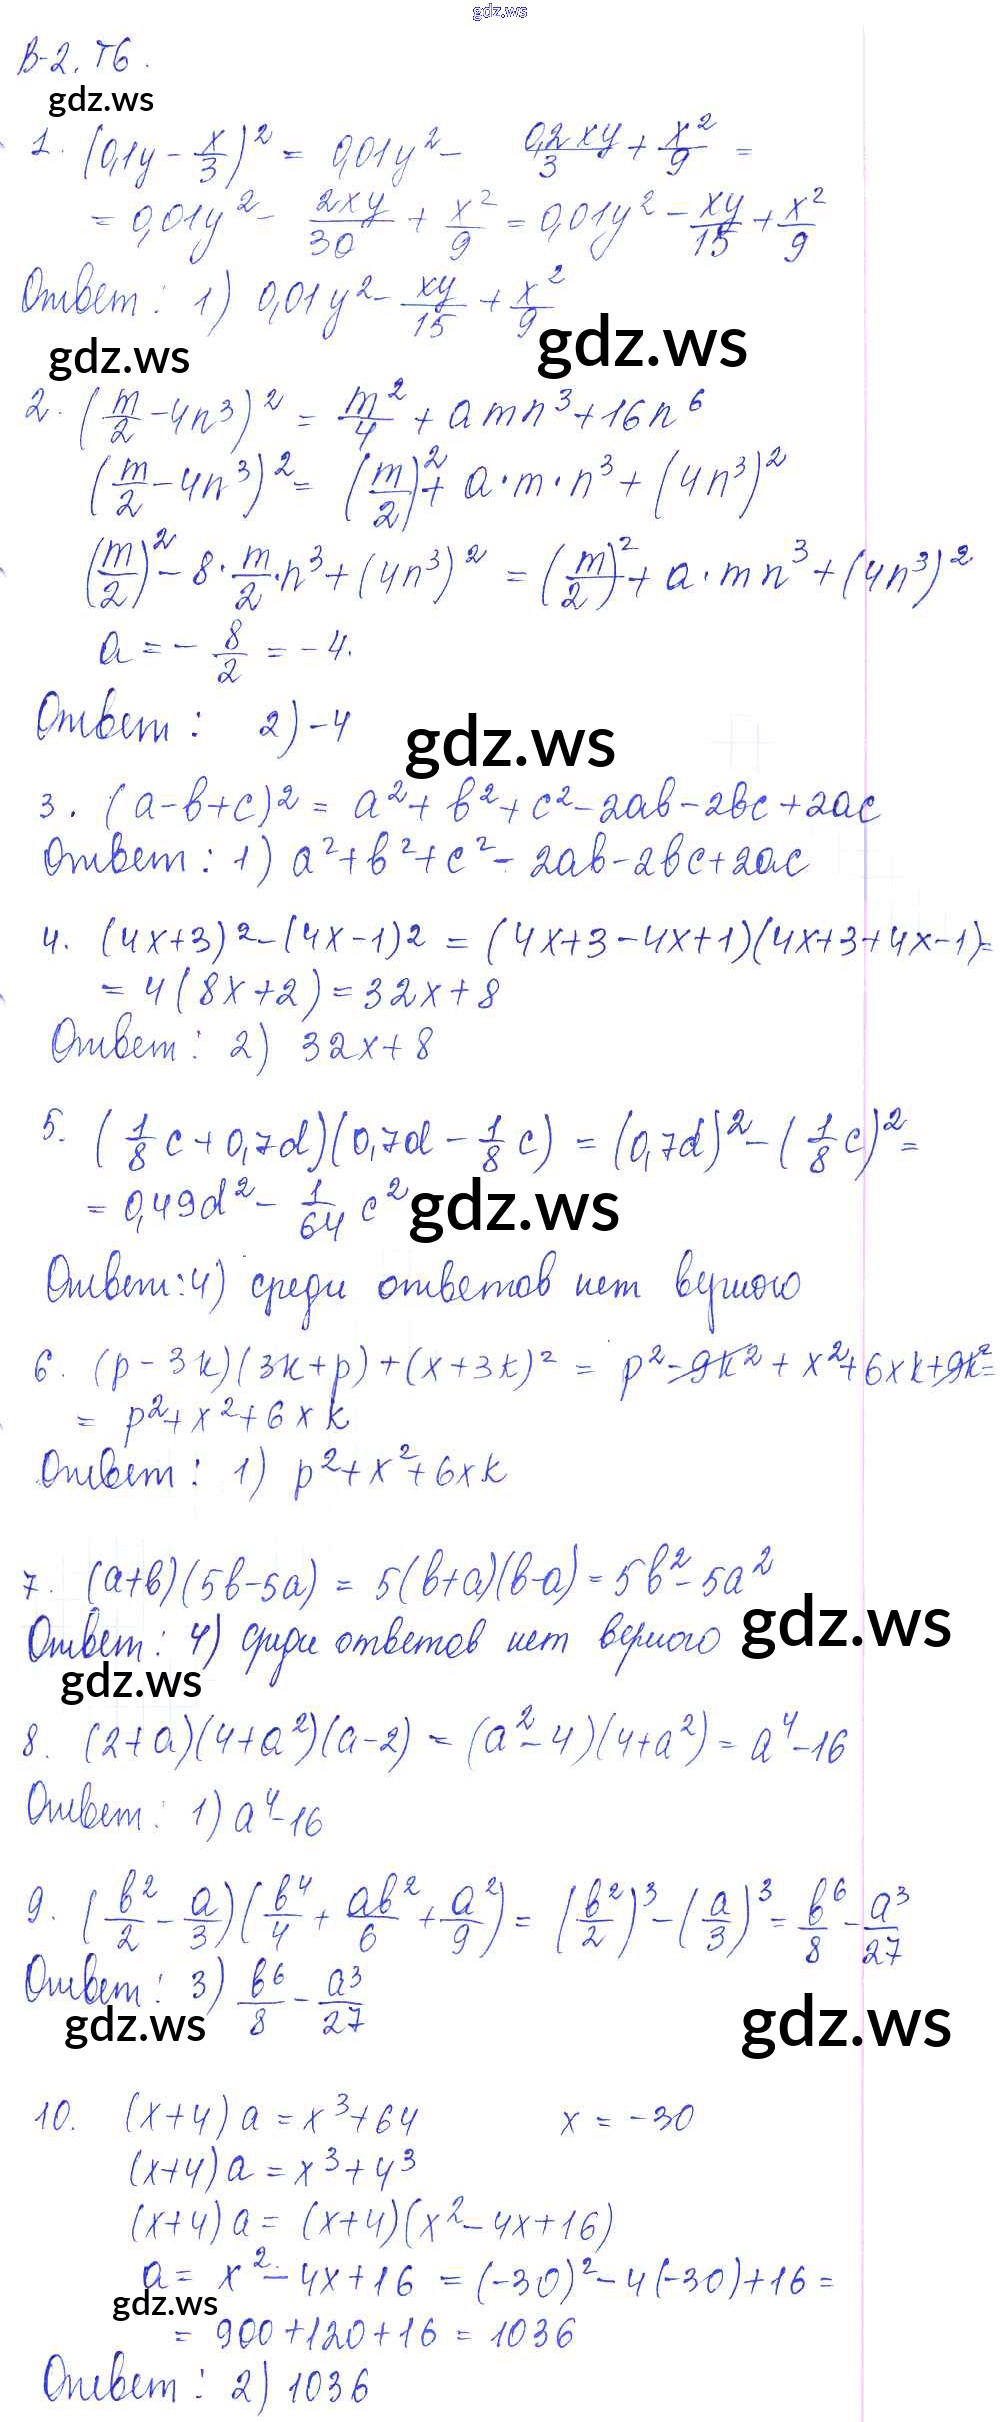 gdz.ws
В-2. Т6.
gdz.ws
1. (0,1y - x/3)² = 0,01y² - 0,2xy/3 + x²/9 =
= 0,01y² - 2xy/30 + x²/9 = 0,01y² - xy/15 + x²/9
Ответ: 1) 0,01y² - xy/15 + x²/9
gdz.ws
gdz.ws
2. (m/2 - 4n³)² = m²/4 + amn³ + 16n⁶
(m/2 - 4n³)² = (m/2)² + a·m·n³ + (4n³)²
(m/2)² - 8·m/2·n³ + (4n³)² = (m/2)² + a·mn³ + (4n³)²
a = - 8/2 = -4.
Ответ: 2) -4
gdz.ws
3. (a-b+c)² = a² + b² + c² - 2ab - 2bc + 2ac
Ответ: 1) a² + b² + c² - 2ab - 2bc + 2ac
4. (4x+3)² - (4x-1)² = (4x+3-4x+1)(4x+3+4x-1) =
= 4(8x+2) = 32x+8
Ответ: 2) 32x+8
5. (1/8 c + 0,7d)(0,7d - 1/8 c) = (0,7d)² - (1/8 c)² =
= 0,49d² - 1/64 c²
gdz.ws
Ответ: 4) среди ответов нет верного
6. (p-3k)(3k+p) + (x+3k)² = p² - 9k² + x² + 6xk + 9k² =
= p² + x² + 6xk
Ответ: 1) p² + x² + 6xk
7. (a+b)(5b-5a) = 5(b+a)(b-a) = 5b² - 5a²
gdz.ws
Ответ: 4) среди ответов нет верного
gdz.ws
8. (2+a)(4+a²)(a-2) = (a²-4)(4+a²) = a⁴-16
Ответ: 1) a⁴-16
9. (b²/2 - a/3)(b⁴/4 + ab²/6 + a²/9) = (b²/2)³ - (a/3)³ = b⁶/8 - a³/27
Ответ: 3) b⁶/8 - a³/27
gdz.ws
gdz.ws
10. (x+4)a = x³+64 x = -30
(x+4)a = x³+4³
(x+4)a = (x+4)(x²-4x+16)
a = x²-4x+16 = (-30)²-4(-30)+16 =
gdz.ws
= 900+120+16 = 1036
Ответ: 2) 1036